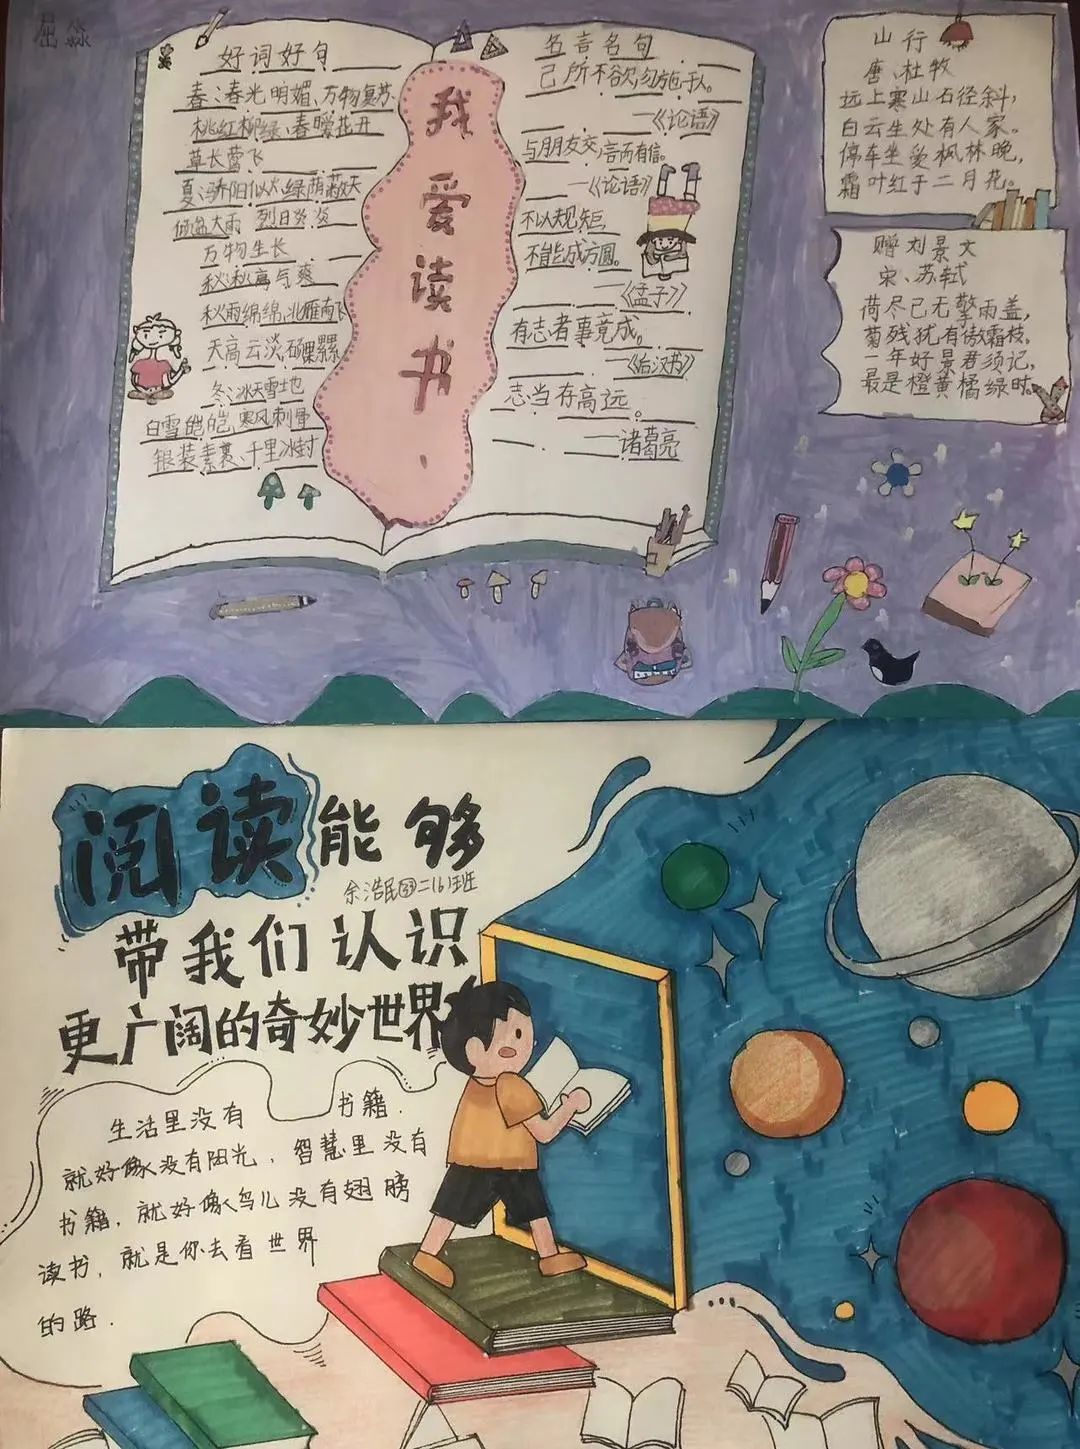 屈淼
好词好句
春:春光明媚、万物复苏、
桃红柳绿、春暖花开
草长莺飞
夏:骄阳似火、绿荫蔽天
倾盆大雨 烈日炎炎
万物生长
秋:秋高气爽
秋雨绵绵、北雁南飞
天高云淡、硕果累累
冬:冰天雪地
白雪皑皑 寒风刺骨
银装素裹、千里冰封
我爱读书.
名言名句
己所不欲,勿施于人。
—《论语》
与朋友交,言而有信。
—《论语》
不以规矩,
不能成方圆。
—《孟子》
有志者事竟成。
—《后汉书》
志当存高远。
——诸葛亮
山行
唐、杜牧
远上寒山石径斜,
白云生处有人家。
停车坐爱枫林晚,
霜叶红于二月花。
赠刘景文
宋、苏轼
荷尽已无擎雨盖,
菊残犹有傲霜枝。
一年好景君须记,
最是橙黄橘绿时。
阅读能够
余浩民 二(6)班
带我们认识
更广阔的奇妙世界
生活里没有书籍.
就好像没有阳光.智慧里没有
书籍,就好像鸟儿没有翅膀
读书,就是你去看世界
的路.